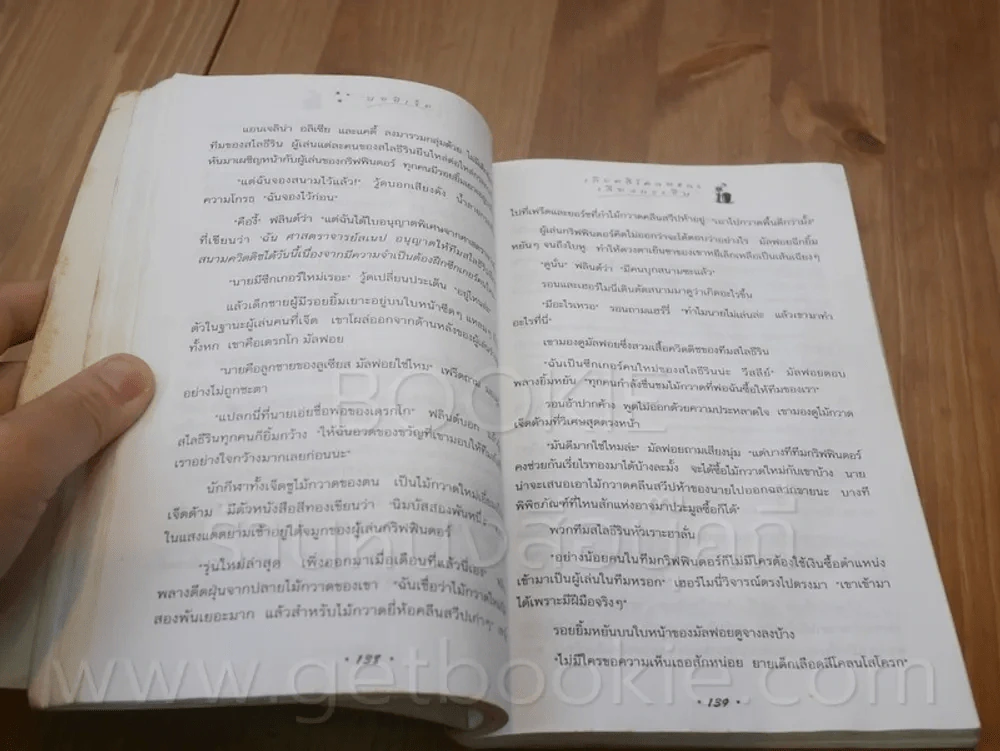 บทที่เจ็ด
แอนเจลิน่า อลิเซีย และเคตี้ ลงมารวมกลุ่มด้วย
ทีมของสลิธีริน ผู้เล่นแต่ละคนของสลิธีรินยืนไหล่ต่อไหล่
หันมาเผชิญหน้ากับผู้เล่นของกริฟฟินดอร์ ทุกคนมีรอยยิ้ม
"แต่ฉันจองสนามไว้แล้ว!" วู้ดบอกเสียงดัง
ความโกรธ "ฉันจองไว้ก่อน"
"คืองี้" ฟลินต์ว่า "แต่ฉันได้ใบอนุญาตพิเศษจากศาสตราจารย์
ที่เขียนว่า 'ฉัน ศาสตราจารย์สเนป อนุญาตให้ทีมสลิธีริน
สนามควิดดิชได้วันนี้เนื่องจากมีความจำเป็นต้องฝึกซีกเกอร์คนใหม่
"นายมีซีกเกอร์ใหม่เรอะ" วู้ดเปลี่ยนประเด็น "อยู่ไหนล่ะ
แล้วเด็กชายผู้มีรอยยิ้มเยาะอยู่บนใบหน้าซีดๆ แหลมๆ
ตัวในฐานะผู้เล่นคนที่เจ็ด เขาโผล่ออกจากด้านหลังของผู้เล่น
ทั้งหก เขาคือเดรกโก มัลฟอย
"นายคือลูกชายของลูเซียส มัลฟอยใช่ไหม" เฟร็ดถาม
อย่างไม่ถูกชะตา
"แปลกนี่ที่นายเอ่ยชื่อพ่อของเดรกโก" ฟลินต์บอก
สลิธีรินทุกคนก็ยิ้มกว้าง "ให้ฉันอวดของขวัญที่เขามอบให้ทีม
เราอย่างใจกว้างมากเลยก่อนนะ"
นักกีฬาทั้งเจ็ดชูไม้กวาดของตน เป็นไม้กวาดใหม่เอี่ยม
เจ็ดด้าม มีตัวหนังสือสีทองเขียนว่า 'นิมบัสสองพันหนึ่ง'
ในแสงแดดยามเช้าอยู่ใต้จมูกของผู้เล่นกริฟฟินดอร์
"รุ่นใหม่ล่าสุด เพิ่งออกมาเมื่อเดือนที่แล้วนี่เอง"
พลางดีดฝุ่นจากปลายไม้กวาดของเขา "ฉันเชื่อว่าไม้กวาด
สองพันเยอะมาก แล้วสำหรับไม้กวาดยี่ห้อคลีนสวีปเก่าๆ"
• 138 •
เลือดสีโคลนและ
เสียงกระซิบ
ไปที่เฟร็ดและยอร์ชที่กำไม้กวาดคลีนสวีปห้าอยู่ "เอาไปกวาดพื้นดีกว่ามั้ง"
ผู้เล่นกริฟฟินดอร์คิดไม่ออกว่าจะโต้ตอบว่าอย่างไร มัลฟอยฉีกยิ้ม
หยันๆ จนถึงใบหู ทำให้ดวงตาเย็นชาของเขาหยีเล็กเหลือเป็นเส้นเฉียงๆ
"ดูนั่น" ฟลินต์ว่า "มีคนบุกสนามซะแล้ว"
รอนและเฮอร์ไมโนี่เดินตัดสนามมาดูว่าเกิดอะไรขึ้น
"มีอะไรเหรอ" รอนถามแฮร์รี่ "ทำไมนายไม่เล่นล่ะ แล้วเขามาทำ
อะไรที่นี่"
เขามองดูมัลฟอยซึ่งสวมเสื้อควิดดิชของทีมสลิธีริน
"ฉันเป็นซีกเกอร์คนใหม่ของสลิธีรินน่ะ วีสลีย์" มัลฟอยตอบ
พลางยิ้มหยัน "ทุกคนกำลังชื่นชมไม้กวาดที่พ่อฉันซื้อให้ทีมของเรา"
รอนอ้าปากค้าง พูดไม่ออกด้วยความประหลาดใจ เขามองดูไม้กวาด
เจ็ดด้ามที่วิเศษสุดตรงหน้า
"มันดีมากใช่ไหมล่ะ" มัลฟอยถามเสียงนุ่ม "แต่บางทีทีมกริฟฟินดอร์
คงช่วยกันเรี่ยไรทองมาได้บ้างละมั้ง จะได้ซื้อไม้กวาดใหม่กับเขาบ้าง นาย
น่าจะเสนอเอาไม้กวาดคลีนสวีปห้าของนายไปออกฉลากขายนะ บางที
พิพิธภัณฑ์ที่ไหนสักแห่งอาจมาประมูลซื้อก็ได้"
พวกทีมสลิธีรินหัวเราะฮาลั่น
"อย่างน้อยคนในทีมกริฟฟินดอร์ก็ไม่มีใครต้องใช้เงินซื้อตำแหน่ง
เข้ามาเป็นผู้เล่นในทีมหรอก" เฮอร์ไมโนี่วิจารณ์ตรงไปตรงมา "เขาเข้ามา
ได้เพราะมีฝีมือจริงๆ"
รอยยิ้มหยันบนใบหน้าของมัลฟอยดูจางลงบ้าง
"ไม่มีใครขอความเห็นเธอสักหน่อย ยายเด็กเลือดสีโคลนโสโครก"
• 139 •
BOOKIE
www.getbookie.com